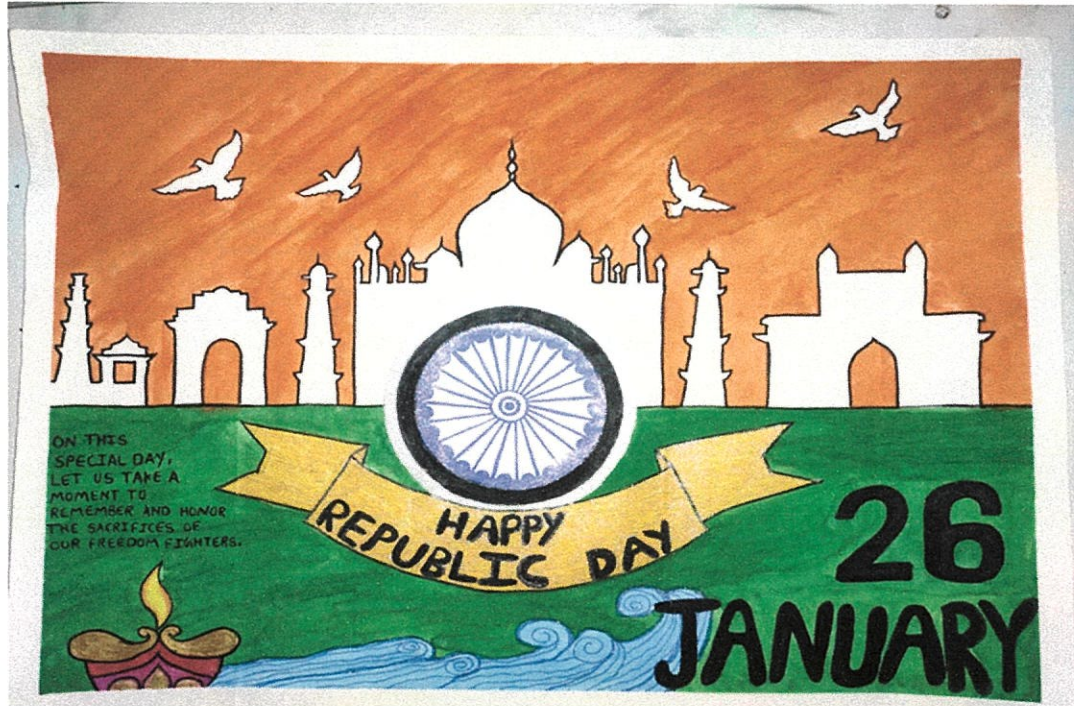 ON THIS
SPECIAL DAY,
LET US TAKE A
MOMENT TO
REMEMBER AND HONOR
THE SACRIFICES OF
OUR FREEDOM FIGHTERS.
HAPPY
REPUBLIC DAY
26
JANUARY